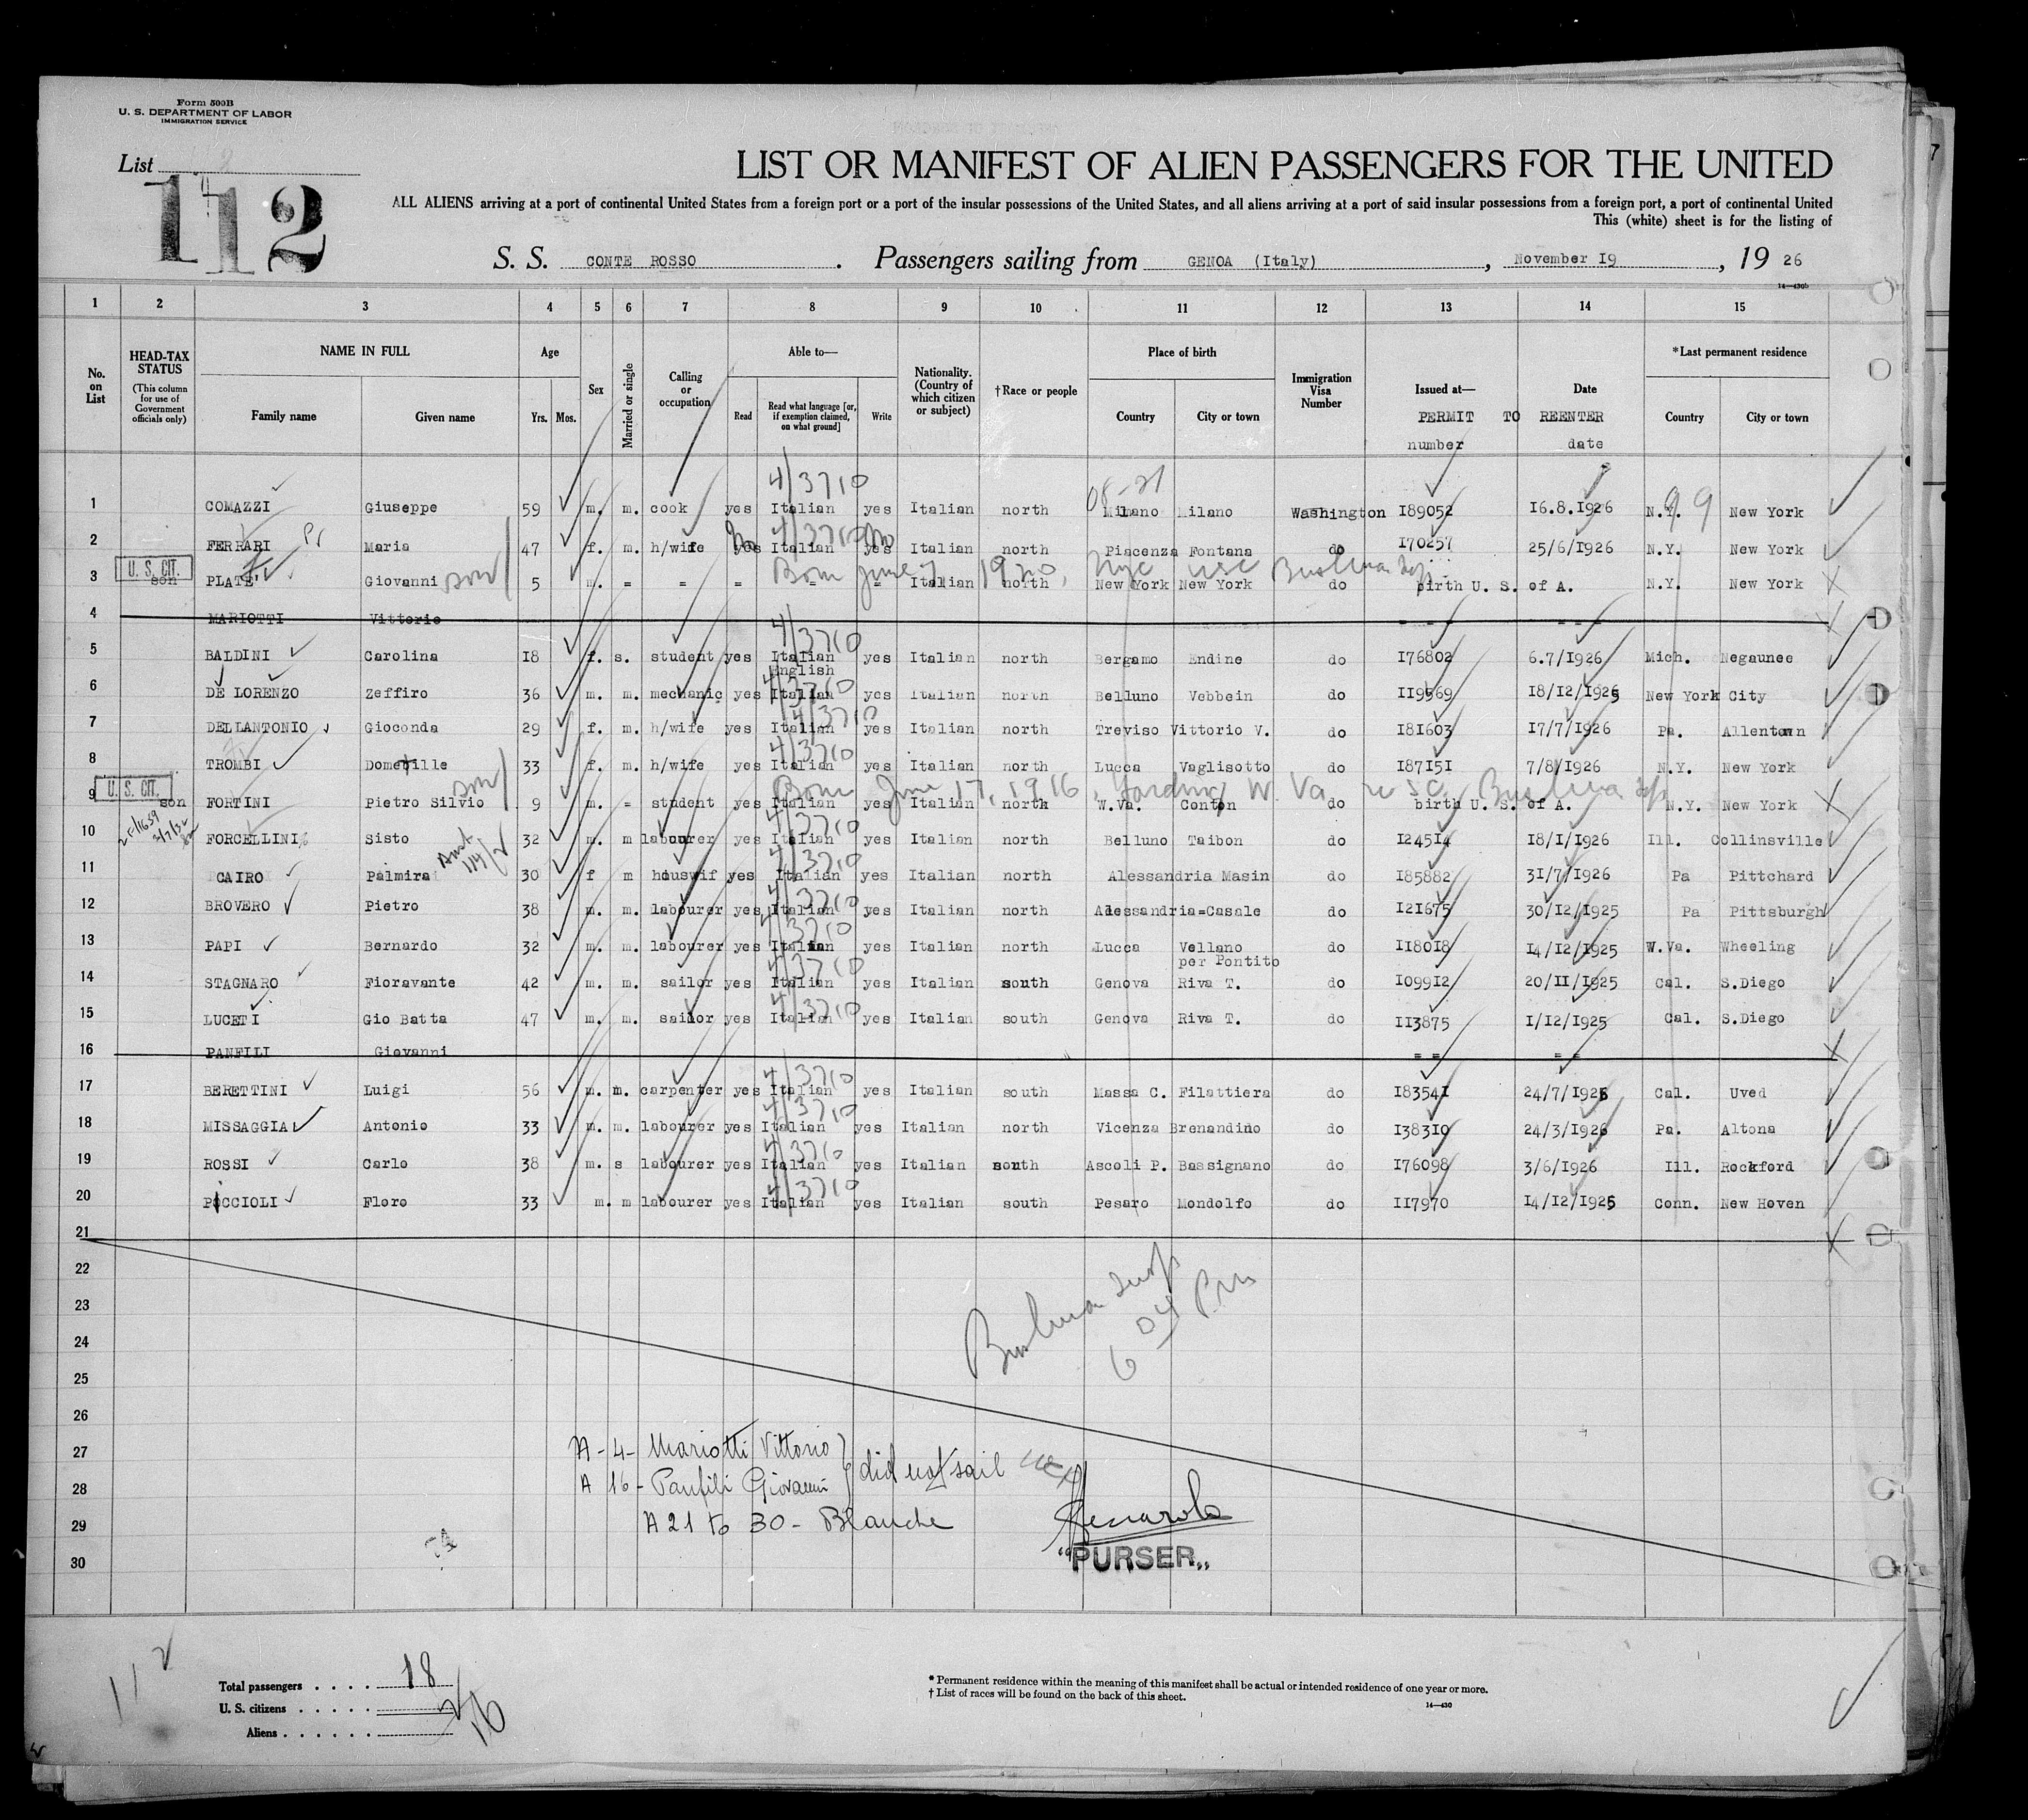 Form 500B
U. S. DEPARTMENT OF LABOR
IMMIGRATION SERVICE
List
112
LIST OR MANIFEST OF ALIEN PASSENGERS FOR THE UNITED
ALL ALIENS arriving at a port of continental United States from a foreign port or a port of the insular possessions of the United States, and all aliens arriving at a port of said insular possessions from a foreign port, a port of continental United
This (white) sheet is for the listing of
S. S. CONTE ROSSO . Passengers sailing from GENOA (Italy) , November I9 , 19 26
14—430b
1 2 3 4 5 6 7 8 9 10 11 12 13 14 15
No. on List
HEAD-TAX STATUS (This column for use of Government officials only)
NAME IN FULL Family name Given name
Age Yrs. Mos.
Sex
Married or single
Calling or occupation
Able to— Read Read what language [or, if exemption claimed, on what ground] Write
Nationality. (Country of which citizen or subject)
†Race or people
Place of birth Country City or town
Immigration Visa Number
Issued at— Date
PERMIT TO REENTER
number date
*Last permanent residence Country City or town
4/3710 08-21 9 9
1 COMAZZI Giuseppe 59 m. m. cook yes Italian yes Italian north Milano Milano Washington I89052 I6.8.I926 N.Y. New York
Pr no 4/3710 no
2 FERRARI Maria 47 f. m. h/wife yes Italian yes Italian north Piacenza Fontana do I70257 25/6/I926 N.Y. New York
U. S. CIT. son Born June 7 1920, NYC USC
3 son PLATE' Giovanni 5 m. = = = = = Italian north New York New York do birth U. S. of A. N.Y. New York
4 MARIOTTI Vittorio - - - - - -
4/3710
5 BALDINI Carolina I8 f. s. student yes Italian English yes Italian north Bergamo Endine do I76802 6.7/I926 Mich. Negaunee
4/3710
6 DE LORENZO Zeffiro 36 m. m. mechanic yes Italian yes Italian north Belluno Vebbein do II9569 I8/I2/I925 New York City
4/3710
7 DELLANTONIO Gioconda 29 f. m. h/wife yes Italian yes Italian north Treviso Vittorio V. do I8I603 I7/7/I926 Pa. Allentown
4/3710
8 TROMBI Dometille 33 f. m. h/wife yes Italian yes Italian north Lucca Vaglisotto do I87I5I 7/8/I926 N.Y. New York
U. S. CIT. son Born June 17, 1916, W Va
9 son FORTINI Pietro Silvio 9 m. = student yes Italian yes Italian north W.Va. Conton do birth U. S. of A. N.Y. New York
4/3710
10 FORCELLINI Sisto 32 m. m labourer yes Italian yes Italian north Belluno Taibon do I245I4 I8/I/I926 Ill. Collinsville
4/3710
11 CAIRO Palmira 30 f m houswif yes Italian yes Italian north Alessandria Masin do I85882 3I/7/I926 Pa Pittchard
4/3710
12 BROVERO Pietro 38 m. m. labourer yes Italian yes Italian north Alessandria=Casale do I2I675 30/I2/I925 Pa Pittsburgh
4/3710
13 PAPI Bernardo 32 m. m. labourer yes Italian yes Italian north Lucca Vellano per Pontito do II80I8 I4/I2/I925 W.Va. Wheeling
4/3710
14 STAGNARO Fioravante 42 m. m. sailor yes Italian yes Italian south Genova Riva T. do I099I2 20/II/I925 Cal. S.Diego
4/3710
15 LUCETI Gio Batta 47 m. m. sailor yes Italian yes Italian south Genova Riva T. do II3875 I/I2/I925 Cal. S.Diego
16 PANFILI Giovanni = = = =
4/3710
17 BERETTINI Luigi 56 m. m. carpenter yes Italian yes Italian south Massa C. Filattiera do I8354I 24/7/I926 Cal. Uved
4/3710
18 MISSAGGIA Antonio 33 m. m. labourer yes Italian yes Italian north Vicenza Brenandino do I383I0 24/3/I926 Pa. Altona
4/3710
19 ROSSI Carlo 38 m. s labourer yes Italian yes Italian south Ascoli P. Bassignano do I76098 3/6/I926 Ill. Rockford
4/3710
20 POCCIOLI Floro 33 m. m labourer yes Italian yes Italian south Pesaro Mondolfo do II7970 I4/I2/I925 Conn. New Hoven
21
22
23
24
25
26
27
28
29
30
6 04 Pm
A - 4 - Mariotti Vittorio
A 16 - Panfili Giovanni } did not sail
A 21 to 30 - Blanche
"PURSER"
112
Total passengers 18
U. S. citizens 2
Aliens 16
* Permanent residence within the meaning of this manifest shall be actual or intended residence of one year or more.
† List of races will be found on the back of this sheet.
14—430